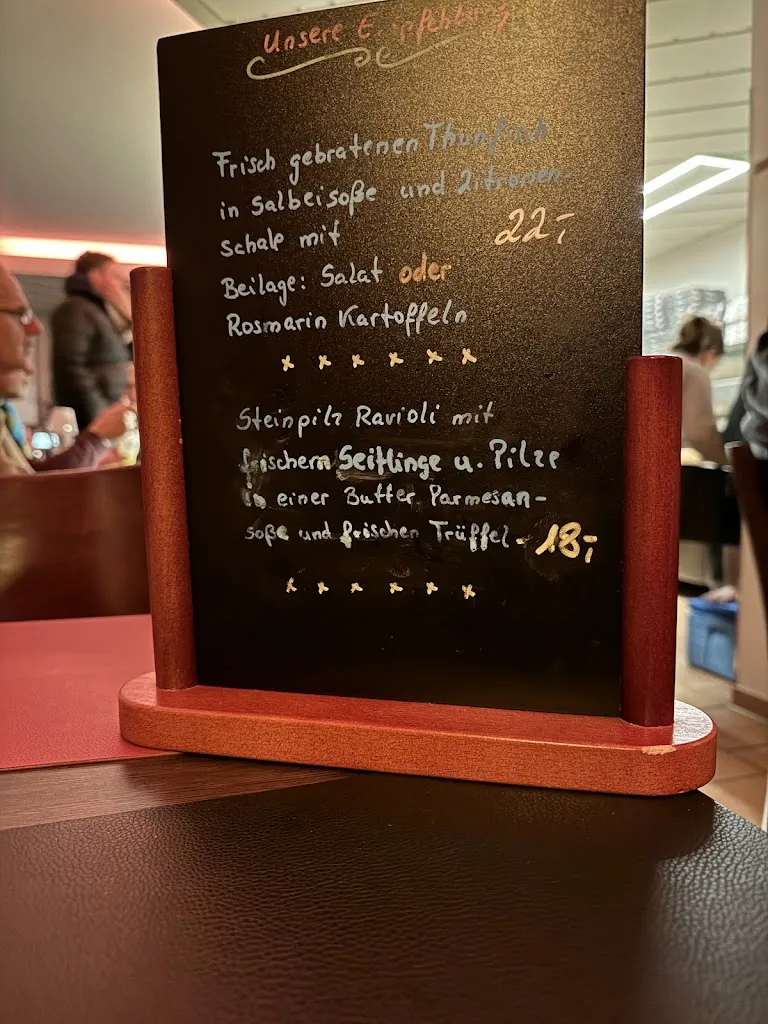 Unsere Empfehlung
Frisch gebratenen Thunfisch
in Salbeisoße und Zitronen
schale mit 22,-
Beilage: Salat oder
Rosmarin Kartoffeln
x x x x x x
Steinpilz Ravioli mit
frischem Seitlinge u. Pilze
in einer Butter Parmesan-
soße und frischen Trüffel - 18,-
x x x x x x